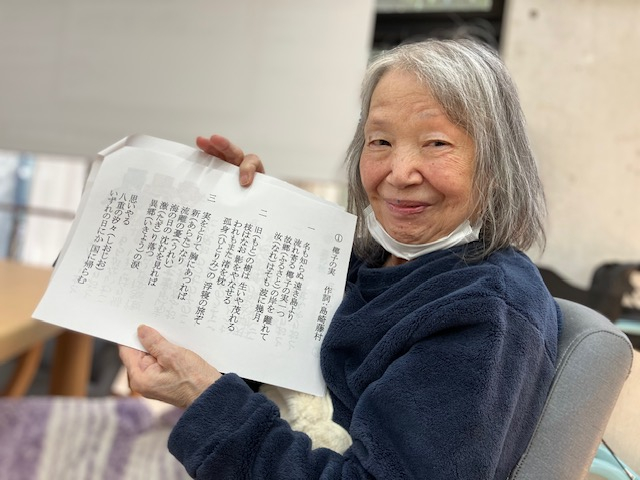 ① 椰子の実　作詞・島崎藤村
一
名も知らぬ 遠き島より
流れ寄る 椰子の実一つ
故郷(ふるさと)の岸を 離れて
汝(なれ)はそも 波に幾月
二
旧(もと)の樹は 生いや茂れる
枝はなお 影をやなせる
われもまた 渚を枕
孤身(ひとりみ)の 浮寝の旅ぞ
三
実をとりて 胸にあつれば
新(あらた)なり
流離の憂(うれい)
海の日の 沈むを見れば
激(たぎ)り落つ
異郷(いきょう)の涙
思いやる
八重の汐々(しおじお)
いずれの日にか 国に帰らむ